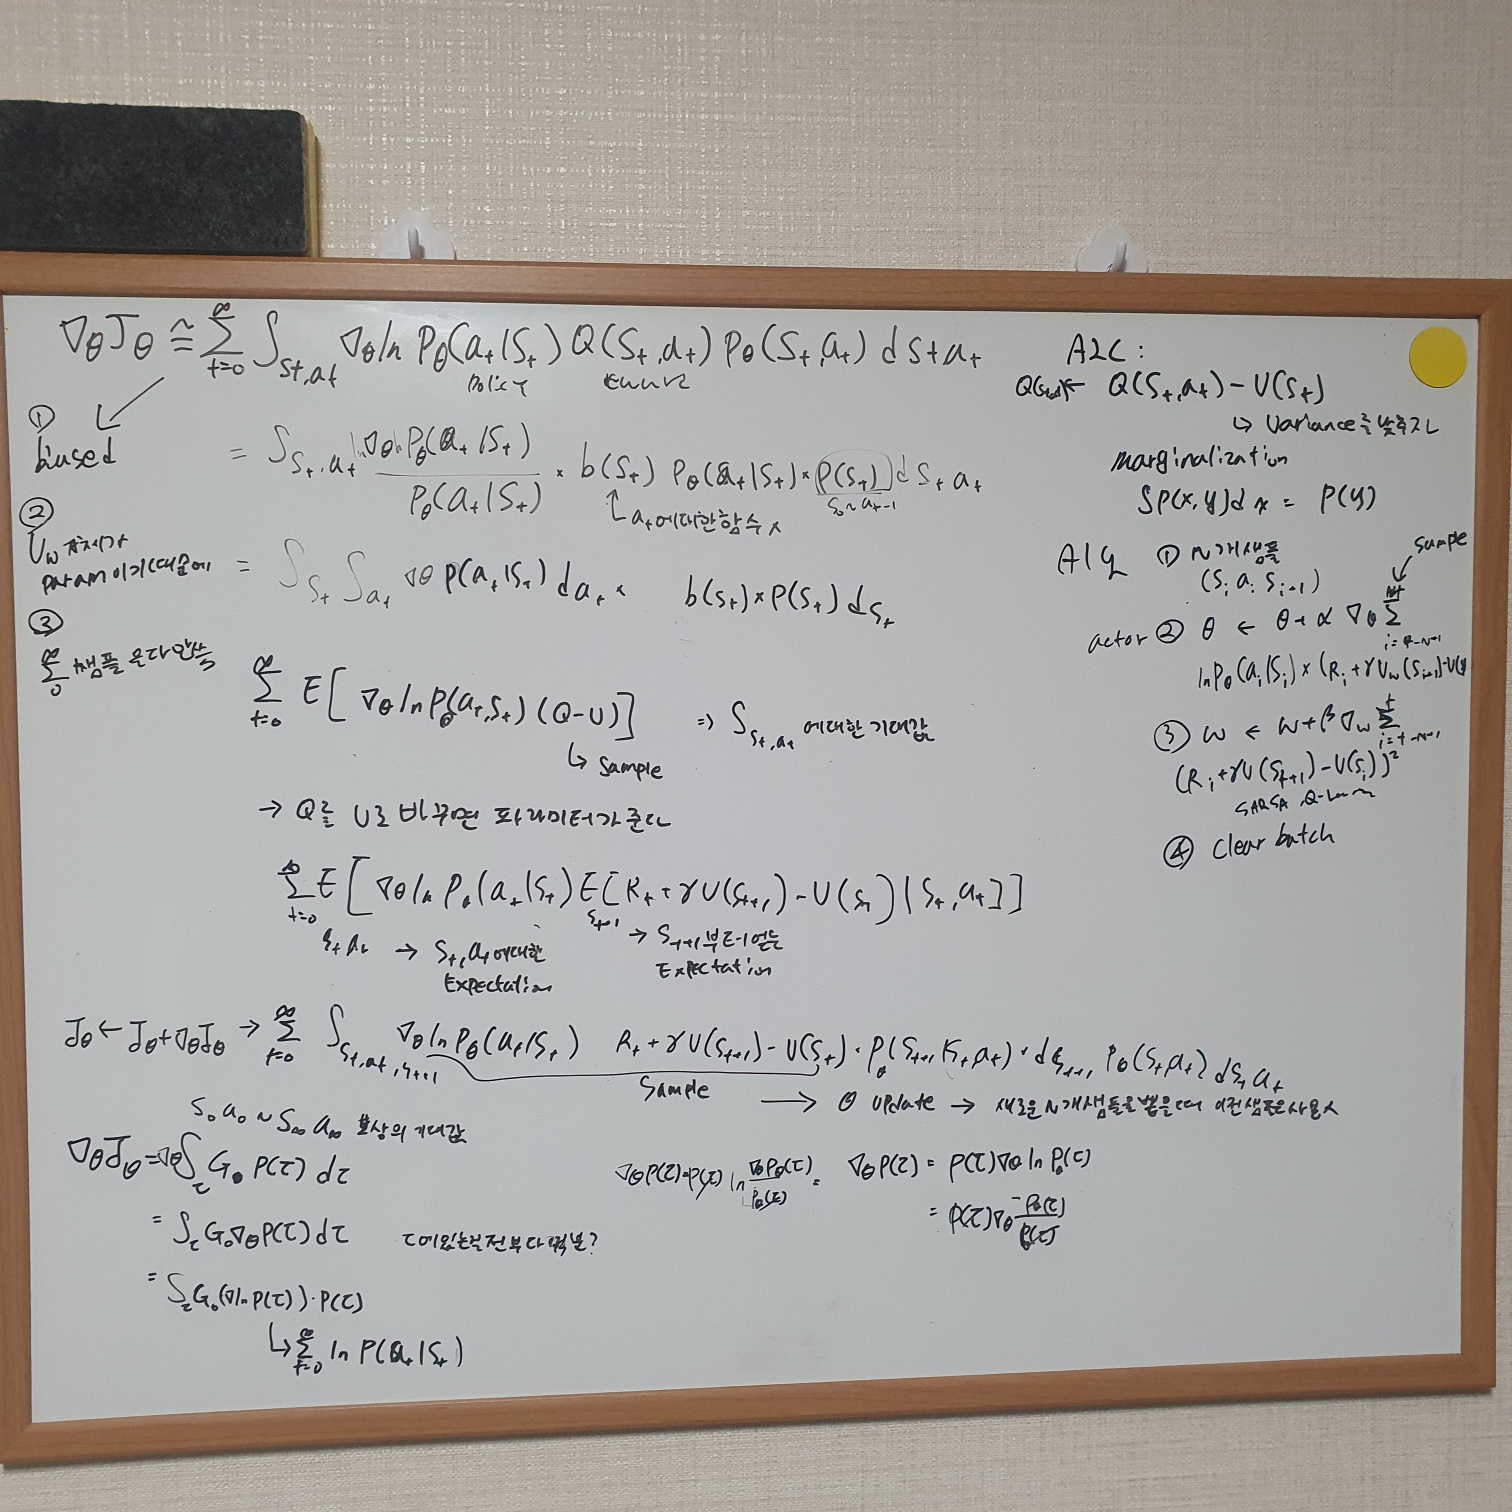 ∇θJθ ≅ ∑_{t=0}^{∞} ∫_{St,at} ∇θ ln Pθ(at|St) Q(St,at) Pθ(St,at) d St at
Policy
① biased
= ∫_{St,at} ∇θ Pθ(at|St) / Pθ(at|St) × b(St) Pθ(at|St) × P(St) d St at
S0 ~ at-1
at에대한함수 x
②
Uw 자체가
param 이기때문에
= ∫_{St} ∫_{at} ∇θ P(at|St) dat × b(St) × P(St) dSt
③
∑_{0}^{∞} 샘플은다안씀
∑_{t=0}^{∞} E[∇θ ln Pθ(at,St) (Q-U)] => ∫_{St,at} 에대한 기대값
↳ Sample
→ Q를 U로 바꾸면 파라미터가 준다
∑_{t=0}^{∞} E[∇θ ln Pθ(at|St) E[Rt+γU(St+1)-U(St) | St,at]]
St at → St, at에대한
Expectation
St+1 → St+1부터얻는
Expectation
Jθ ← Jθ+∇θJθ → ∑_{t=0}^{∞} ∫_{St,at,St+1} ∇θ ln Pθ(at|St) Rt+γU(St+1)-U(St) · Pθ(St+1|St,at) · dSt+1, Pθ(St,at) dSt at
Sample → θ update → 새로운 N개샘플을 뽑을때 이전샘플은사용x
S0 a0 ~ S∞ a∞ 보상의 기대값
∇θJθ = ∇θ∫_τ G0 P(τ) dτ
= ∫_τ G0 ∇θP(τ) dτ
τ에있는걸전부다적분?
= ∫_τ G0(∇ln P(τ)) · P(τ)
↳ ∑_{t=0}^{∞} ln P(at|St)
∇θP(τ)=P(τ) ln ∇θPθ(τ) / Pθ(τ) = ∇θP(τ) = P(τ)∇θ ln Pθ(τ)
= P(τ)∇θ Pθ(τ) / P(τ)
A2C :
← Q(St,at) - U(St)
↳ Variance를 낮추자
marginalization
∫P(x,y)dx = P(y)
Alg ① N개샘플
(Si ai Si+1)
Sample
actor ② θ ← θ+α ∇θ ∑
ln Pθ(ai|Si) × (Ri+γUw(Si+1)-U(
③ w ← w+β ∇w ∑_{i=t-N+1}^{t}
(Ri+γU(Si+1)-U(Si))²
SARSA Q-learn
④ Clear batch